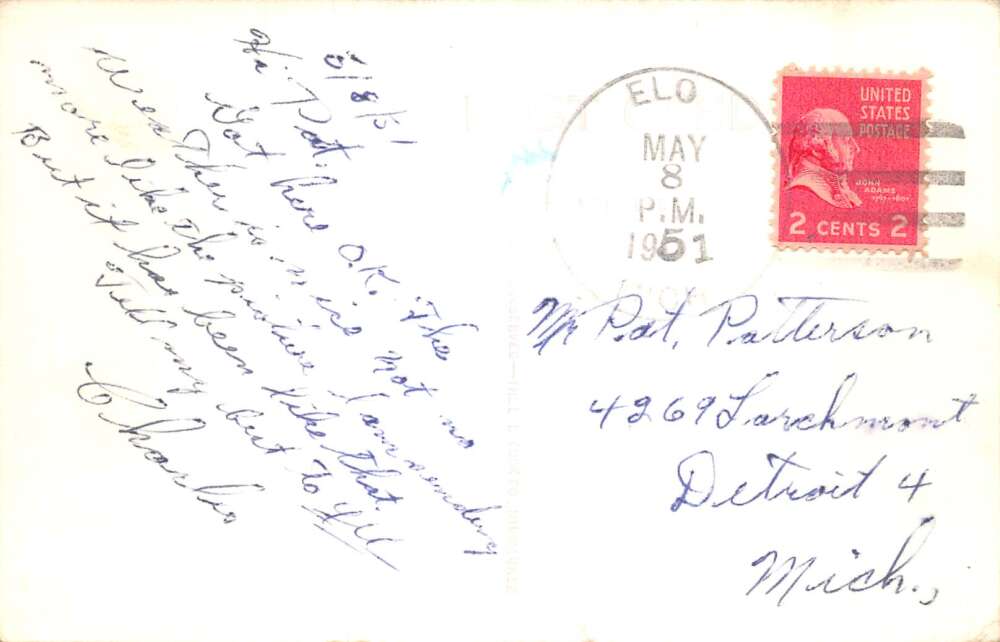 5/8/51
Hi Pat,
Got here O.K. The
Wea Ther is nice not no
more like the picture I am sending
But it has been like that.
Tell my best to
Charles
ELO
MAY
8
P.M.
1951
UNITED
STATES
POSTAGE
JOHN
ADAMS
2 CENTS 2
Mr Pat. Patterson
4269 Larchmont
Detroit 4
Mich.,